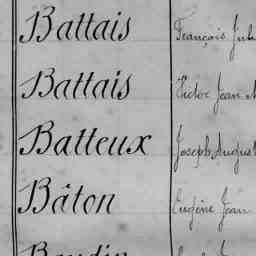 Battais François Jul
Battais Victor Jean M
Batteux Joseph August
Bâton Eugène Jean
Baudin